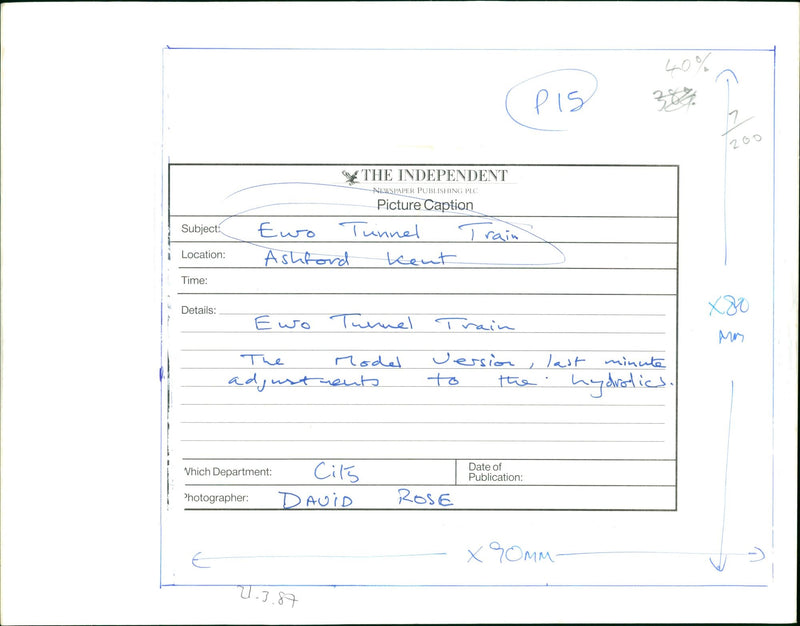 40%
P15
7/200
THE INDEPENDENT
NEWSPAPER PUBLISHING PLC
Picture Caption
Subject: Euro Tunnel Train
Location: Ashford Kent
Time:
Details:
Euro Tunnel Train
The Model Version, last minute
adjustments to the hydrolics.
X80
mm
Which Department: City
Date of
Publication:
Photographer: DAVID ROSE
X 90MM
21.3.87